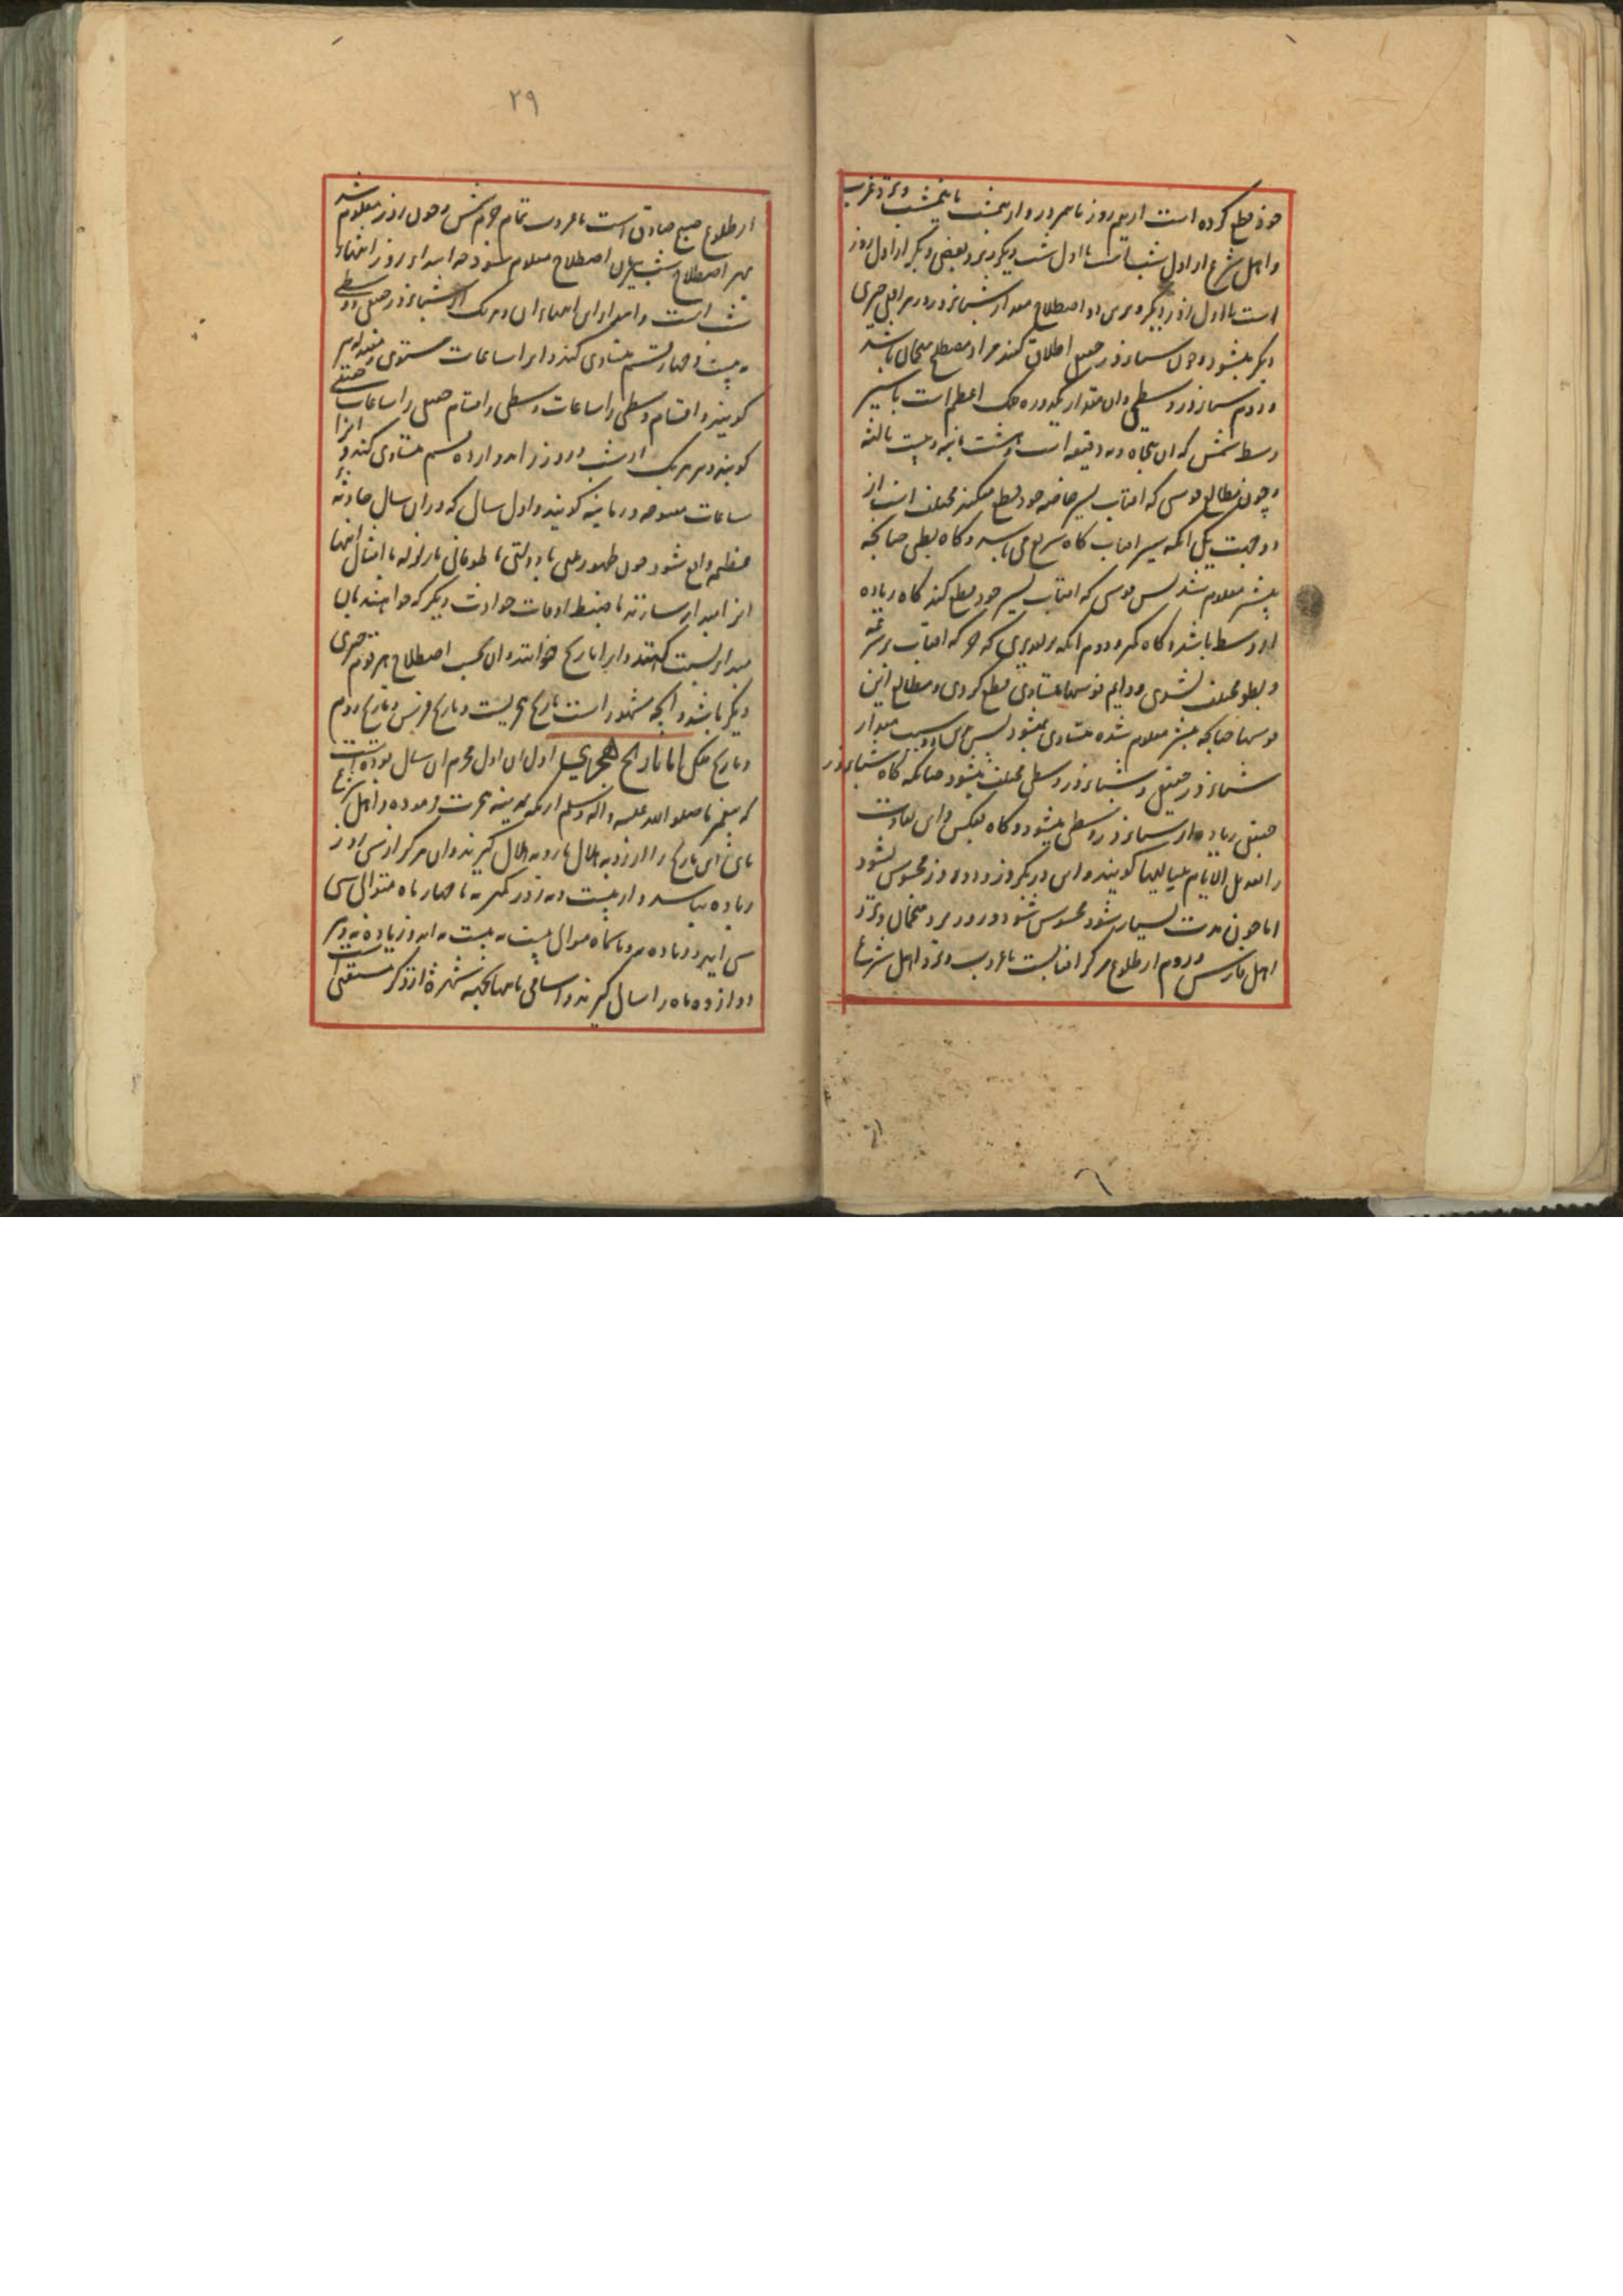 خود قطع کرده است از نیم روز تا نیم روز و از نیمشب تا نیمشب و نزد عرب
و اهل شرع از اول شب است تا اول شب دیگر و نزد بعضی دیگر از اول روز
است تا اول روز دیگر و برین دو اصطلاح مقدار شبانروز در هر افقی چیزی
دیگر میشود و چون شبانروز حقیقی اطلاق کنند مراد مصطلح منجمان باشد
و دوم شبانروز وسطی و آن مقدار یکدوره فلک اعظم است با سیر
وسط شمس که آن پنجاه و نه دقیقه است و هشت ثانیه و بیست ثالثه
و چون مطالع قوسی که افتاب بسیر خاصه خود قطع میکند مختلف است از
دو جهت یکی انکه سیر افتاب کاه سریع می باشد و کاه بطی چنانکه
پیشتر معلوم شد پس قوسی که افتاب بسیر خود قطع کند کاه زیاده
از وسط باشد و کاه کمتر و دوم انکه بر تقدیری که حرکه افتاب بسرعت
و بطو مختلف نشدی و دایم قوسها متساوی قطع کردی و مطالع این
قوسها چنانکه پیشتر معلوم شده متساوی نمیشود پس باین دو سبب مقدار
شبانروز حقیقی و شبانروز وسطی مختلف میشود چنانکه کاه شبانروز
حقیقی زیاده از شبانروز وسطی میشود و کاه بعکس و این تفاوت
را تعدیل الایام بلیالیها کویند و این در یکروز و دو روز محسوس نشود
اما چون مدت بسیار شود محسوس شود و روز نزد منجمان و نزد
اهل فارس و روم از طلوع مرکز افتابست تا غروب و نزد اهل شرع
۲۹
از طلوع صبح صادق است تا غروب تمام جرم شمس و چون روز معلوم شد
بهر اصطلاح شب بهمان اصطلاح معلوم شود چه ابتداء روز انتهاء
شب است و ابتداء این انتهاء ان و هر یک از شبانروز حقیقی و وسطی
به بیست و چهار قسم متساوی کنند و انرا ساعات مستوی و معتدله
کویند و اقسام وسطی را ساعات وسطی و اقسام حقیقی را ساعات حقیقی
کویند و هر یک از شب و روز را بدوازده قسم متساوی کنند و انرا
ساعات معوجه و زمانیه کویند و اول سال که در ان سال حادثه
عظیم واقع شود چون ظهور ملتی یا دولتی یا طوفانی یا زلزله یا امثال اینها
انرا مبداء سازند تا ضبط اوقات حوادث دیگر که خواهند بان
مبداء نسبت کنند و انرا تاریخ خوانند و ان بحسب اصطلاح هر قوم چیزی
دیگر باشد و انچه مشهور است تاریخ هجریست و تاریخ فرس و تاریخ روم
و تاریخ ملکی اما تاریخ الهجری اول ان اول محرم ان سال بوده است
که پیغمبر ما صلوا الله علیه و اله و سلم از مکه بمدینه هجرت فرموده و اهل شرع
ماهی این تاریخ را از رویه هلال تا رویه هلال کیرند و ان هرکز از سی روز
زیاده نباشد و از بیست و نه روز کمتر نه تا چهار ماه متوالی سی
سی اید و زیاده نه و تا سه ماه متوالی بیست نه بیست نه اید و زیاده نه و هر
دوازده ماه را سالی کیرند و اسامی ماهها بجهه شهره از ذکر مستغنی است